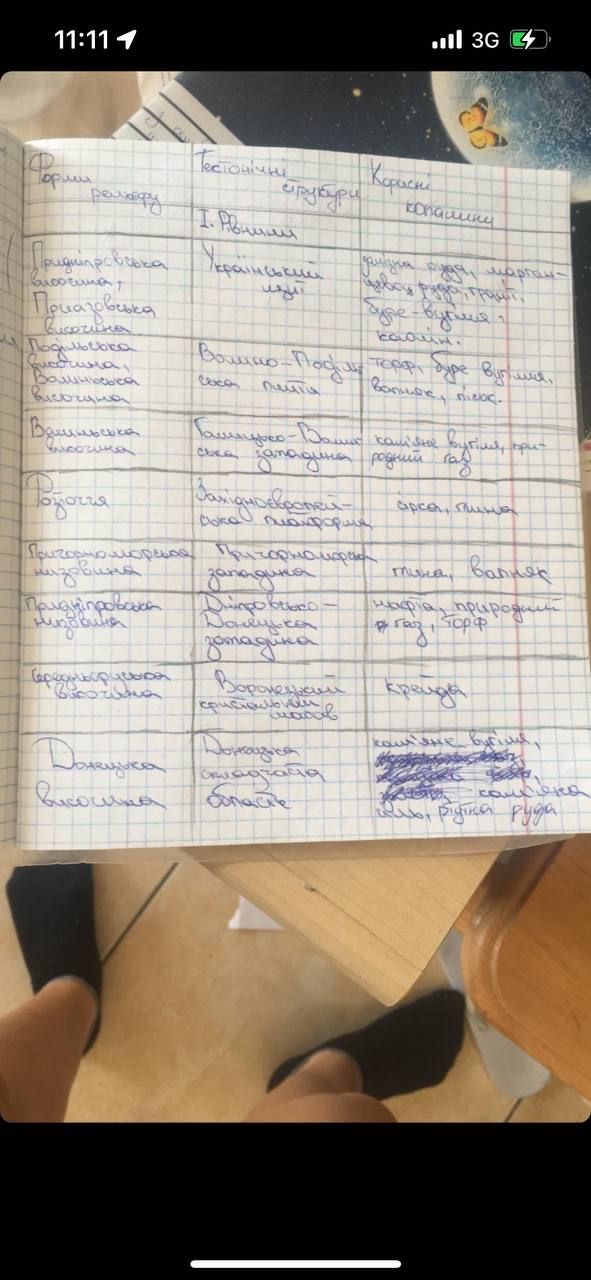 11:11
3G
Форми
рельєфу
Тектонічні
структури
Корисні
копалини
I. Рівнини
Придніпровська
височина,
Приазовська
височина
Український
щит
залізна руда, марган-
цева руда, граніт,
буре вугілля,
каолін.
Подільська
височина,
Волинська
височина
Волино-Поділь
ська плита
торф, буре вугілля,
вапняк, пісок.
Волинська
височина
Галицько-Волин
ська западина
кам'яне вугілля, при-
родний газ
Розточчя
Західноєвропей-
ська платформа
сірка, глина
Причорноморська
низовина
Причорноморська
западина
глина, вапняк
Придніпровська
низовина
Дніпровсько-
Донецька
западина
нафта, природний
газ, торф
Середньоруська
височина
Воронезький
кристалічний
масив
крейда
Донецька
височина
Донецька
складчаста
область
кам'яне вугілля,
кам'яна
сіль, ртутна руда